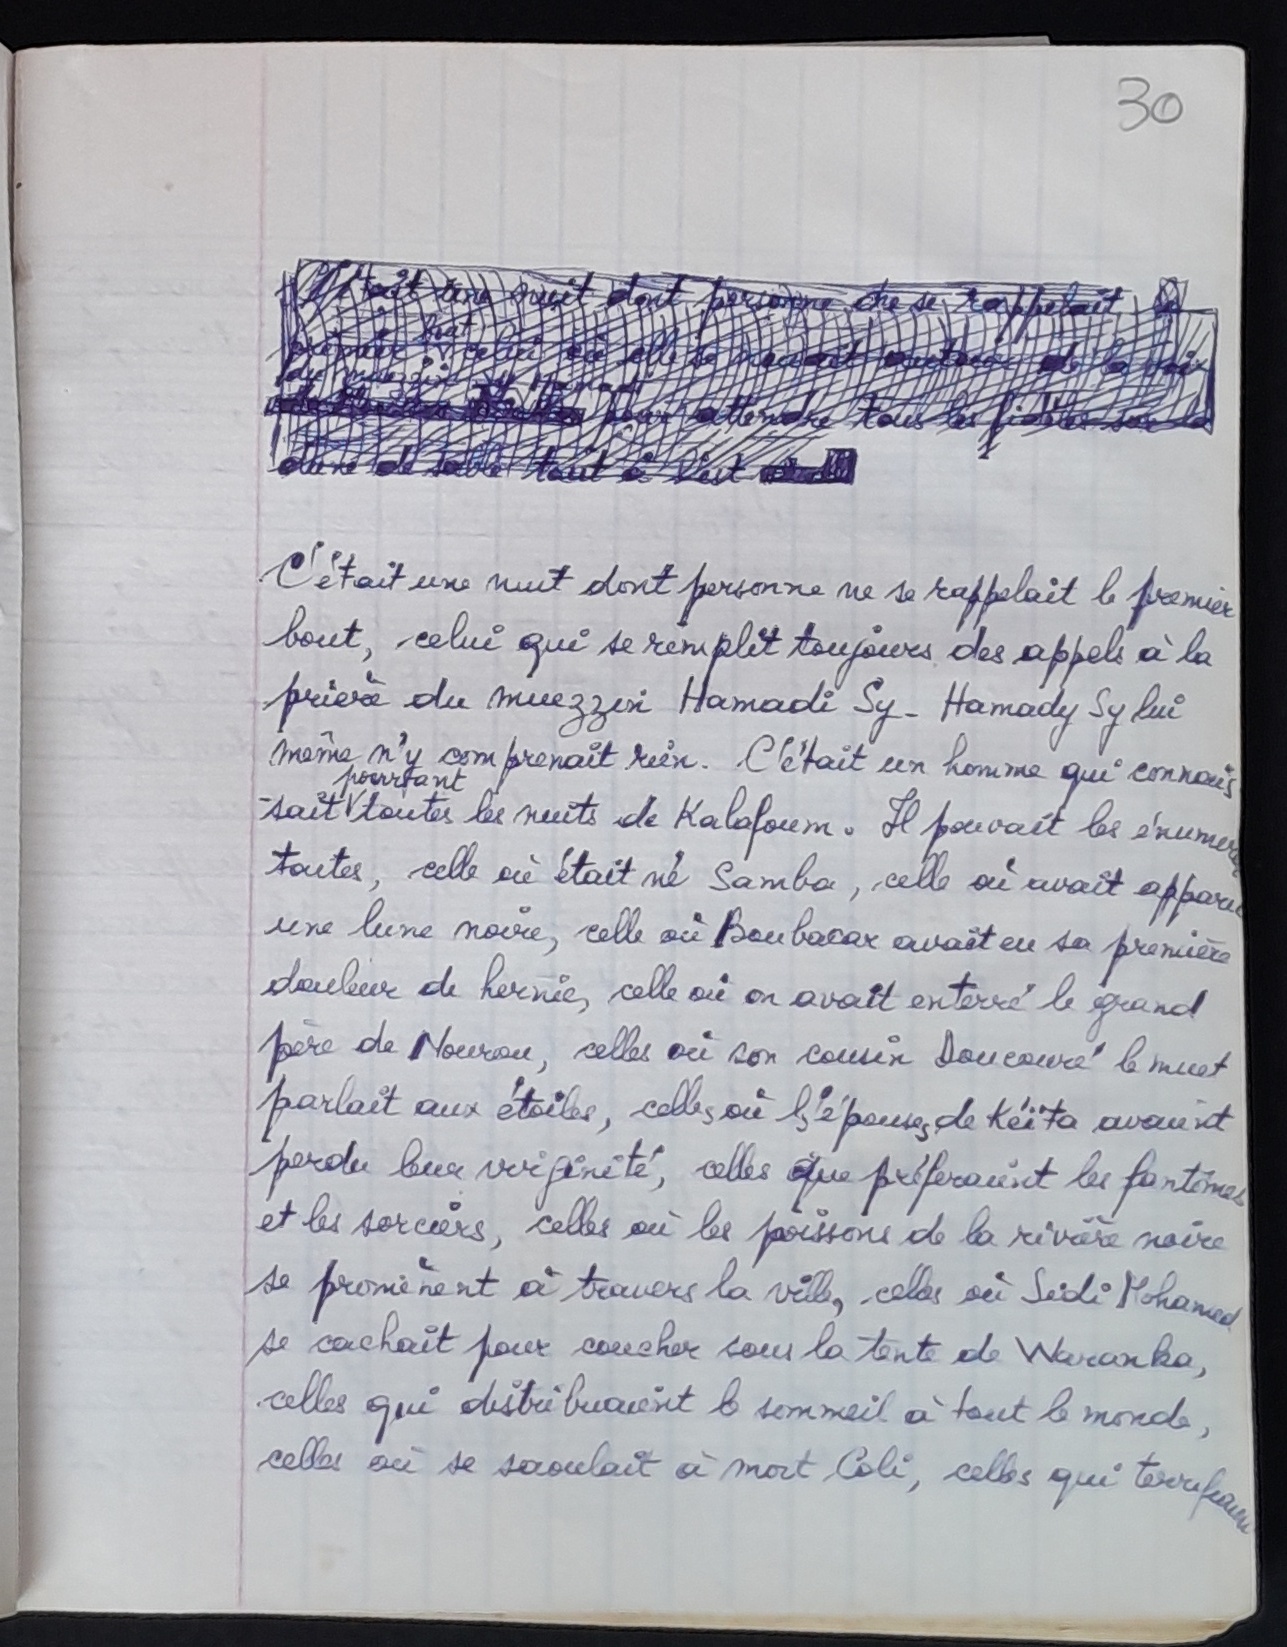 30
C'était une nuit dont personne ne se rappelait le
premier celui où elle se
pour attendre tous les fidèles sur la
dune de sable tout à l'est
C'était une nuit dont personne ne se rappelait le premier
bout, celui qui se remplit toujours des appels à la
prière du muezzin Hamadi Sy - Hamady Sy lui
même n'y comprenait rien. C'était un homme qui connais
pourtant
-sait toutes les nuits de Kalafoum. Il pouvait les énumerer
toutes, celle où était né Samba, celle où avait apparu
une lune noire, celle où Boubacar avait eu sa première
douleur de hernie, celle où on avait enterré le grand
père de Nourou, celles où son cousin Doucouré le muet
parlait aux étoiles, celles où les épouses de Kéïta avaient
perdu leur virginité, celles que préferaient les fantômes
et les sorciers, celles où les poissons de la rivière noire
se promènent à travers la ville, celles où Sidi Mohamed
se cachait pour coucher sous la tente de Waranka,
celles qui distribuaient le sommeil à tout le monde,
celles où se saoulait à mort Coli, celles qui terrifiaient